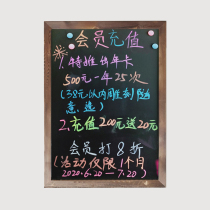 会员充值
1.特推出年卡
500元一年25次
(38元以内周生套)随
意选)
2.充值200元送20元
会员打8折
(活动仅限1个月
2020.6.20—7.20)